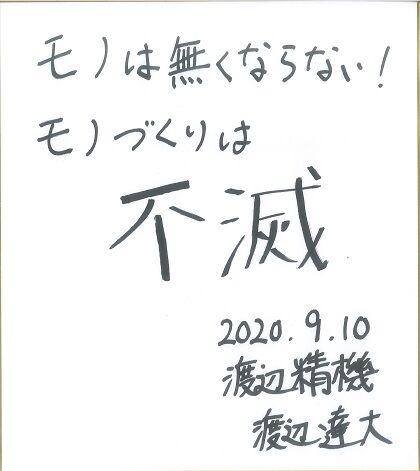 モノは無くならない!
モノづくりは
不滅
2020.9.10
渡辺精機
渡辺達大